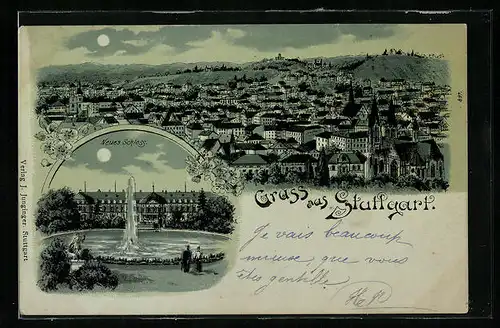 Neues Schloss.
Gruss aus Stuttgart.
Je vais beaucoup
mieux, que vous
êtes gentille!
Verlag J. Junginger, Stuttgart